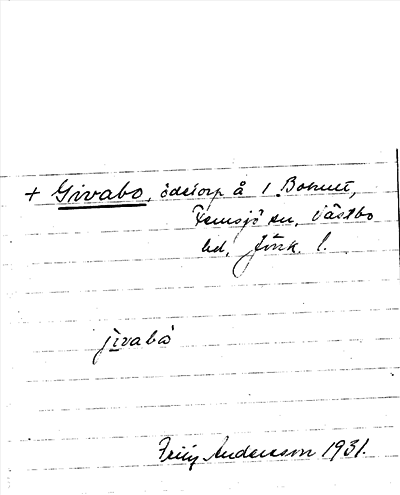 + Givabo, ödetorp å 1 Bokult,
Femsjö sn, Västbo
hd, Jönk. l.
jivabo
Fritz Andersson 1931.